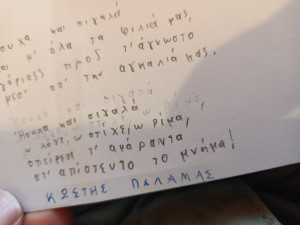 συχα και σιγαλά
μ' όλα τα φιλιά μας,
προς τ' άγνωστο
μεσ' απ' την αγκαλιά μας.
Ήσυχα και σιγαλά
ω λόγε, ω στίχε, ω ρίμα,
σπείρετε τ' αμάραντα
στ' απίστευτο το μνήμα!
ΚΩΣΤΗΣ ΠΑΛΑΜΑΣ